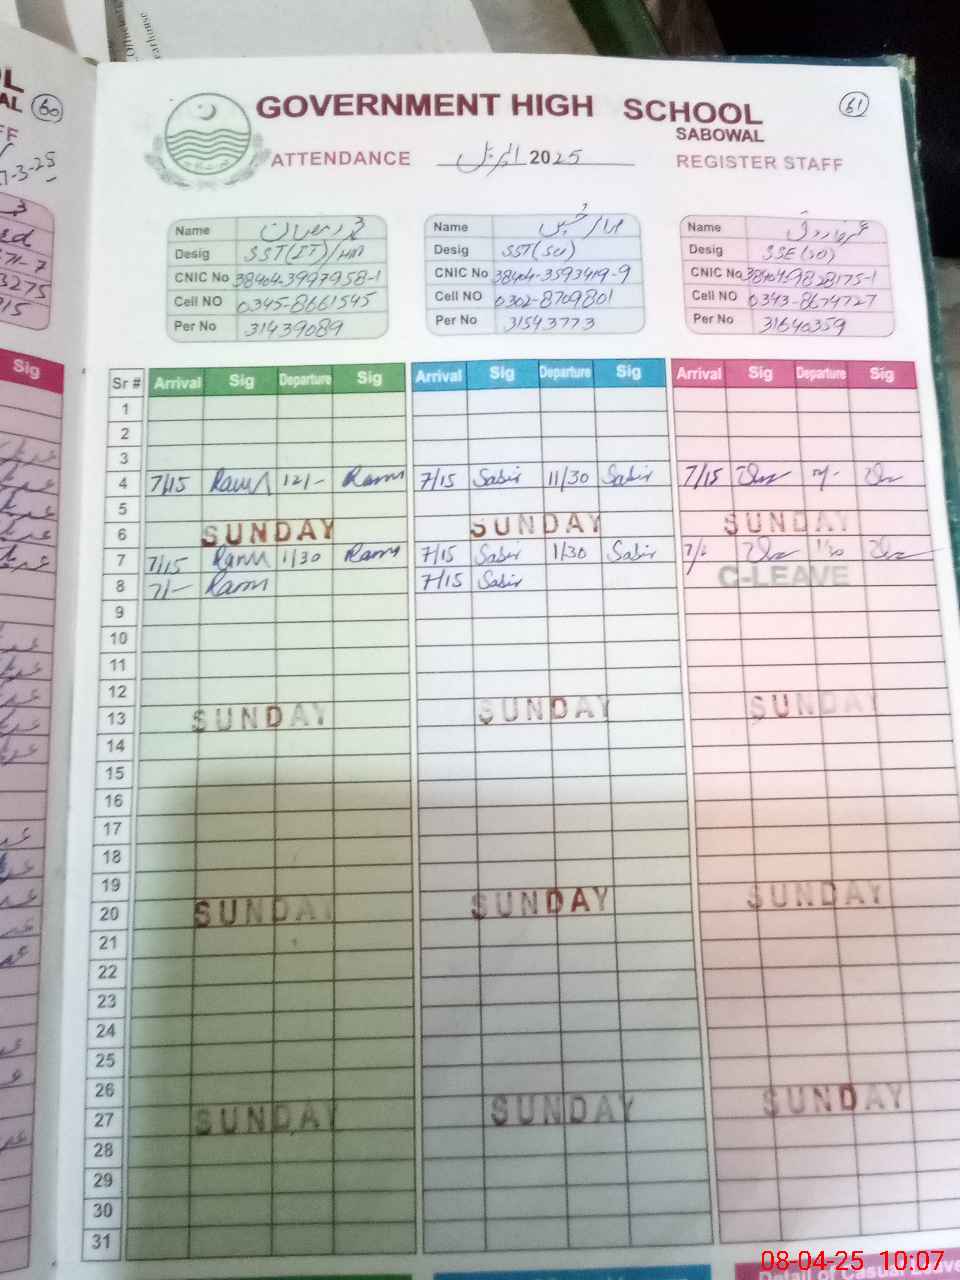 GOVERNMENT HIGH SCHOOL
SABOWAL
61
ATTENDANCE اپریل 2025 REGISTER STAFF
Name محمد رمضان
Desig SST(IT)/HM
CNIC No 38404-3997958-1
Cell NO 0345-8661545
Per No 31439089
Name صابر حسین
Desig SST(Sci)
CNIC No 38404-3593419-9
Cell NO 0302-8709801
Per No 31543773
Name عمر فاروق
Desig SSE(Sci)
CNIC No 38404-9828175-1
Cell NO 0343-8674727
Per No 31640359
Sr # Arrival Sig Departure Sig Arrival Sig Departure Sig Arrival Sig Departure Sig
1
2
3
4 7/15 12/- 7/15 Sabir 11/30 Sabir 7/15
5
6 SUNDAY SUNDAY SUNDAY
7 7/15 1/30 7/15 Sabir 1/30 Sabir
8 7/- 7/15 Sabir C-LEAVE
9
10
11
12
13 SUNDAY SUNDAY SUNDAY
14
15
16
17
18
19
20 SUNDAY SUNDAY SUNDAY
21
22
23
24
25
26
27 SUNDAY SUNDAY SUNDAY
28
29
30
31
60
Sig
08-04-25 10:07